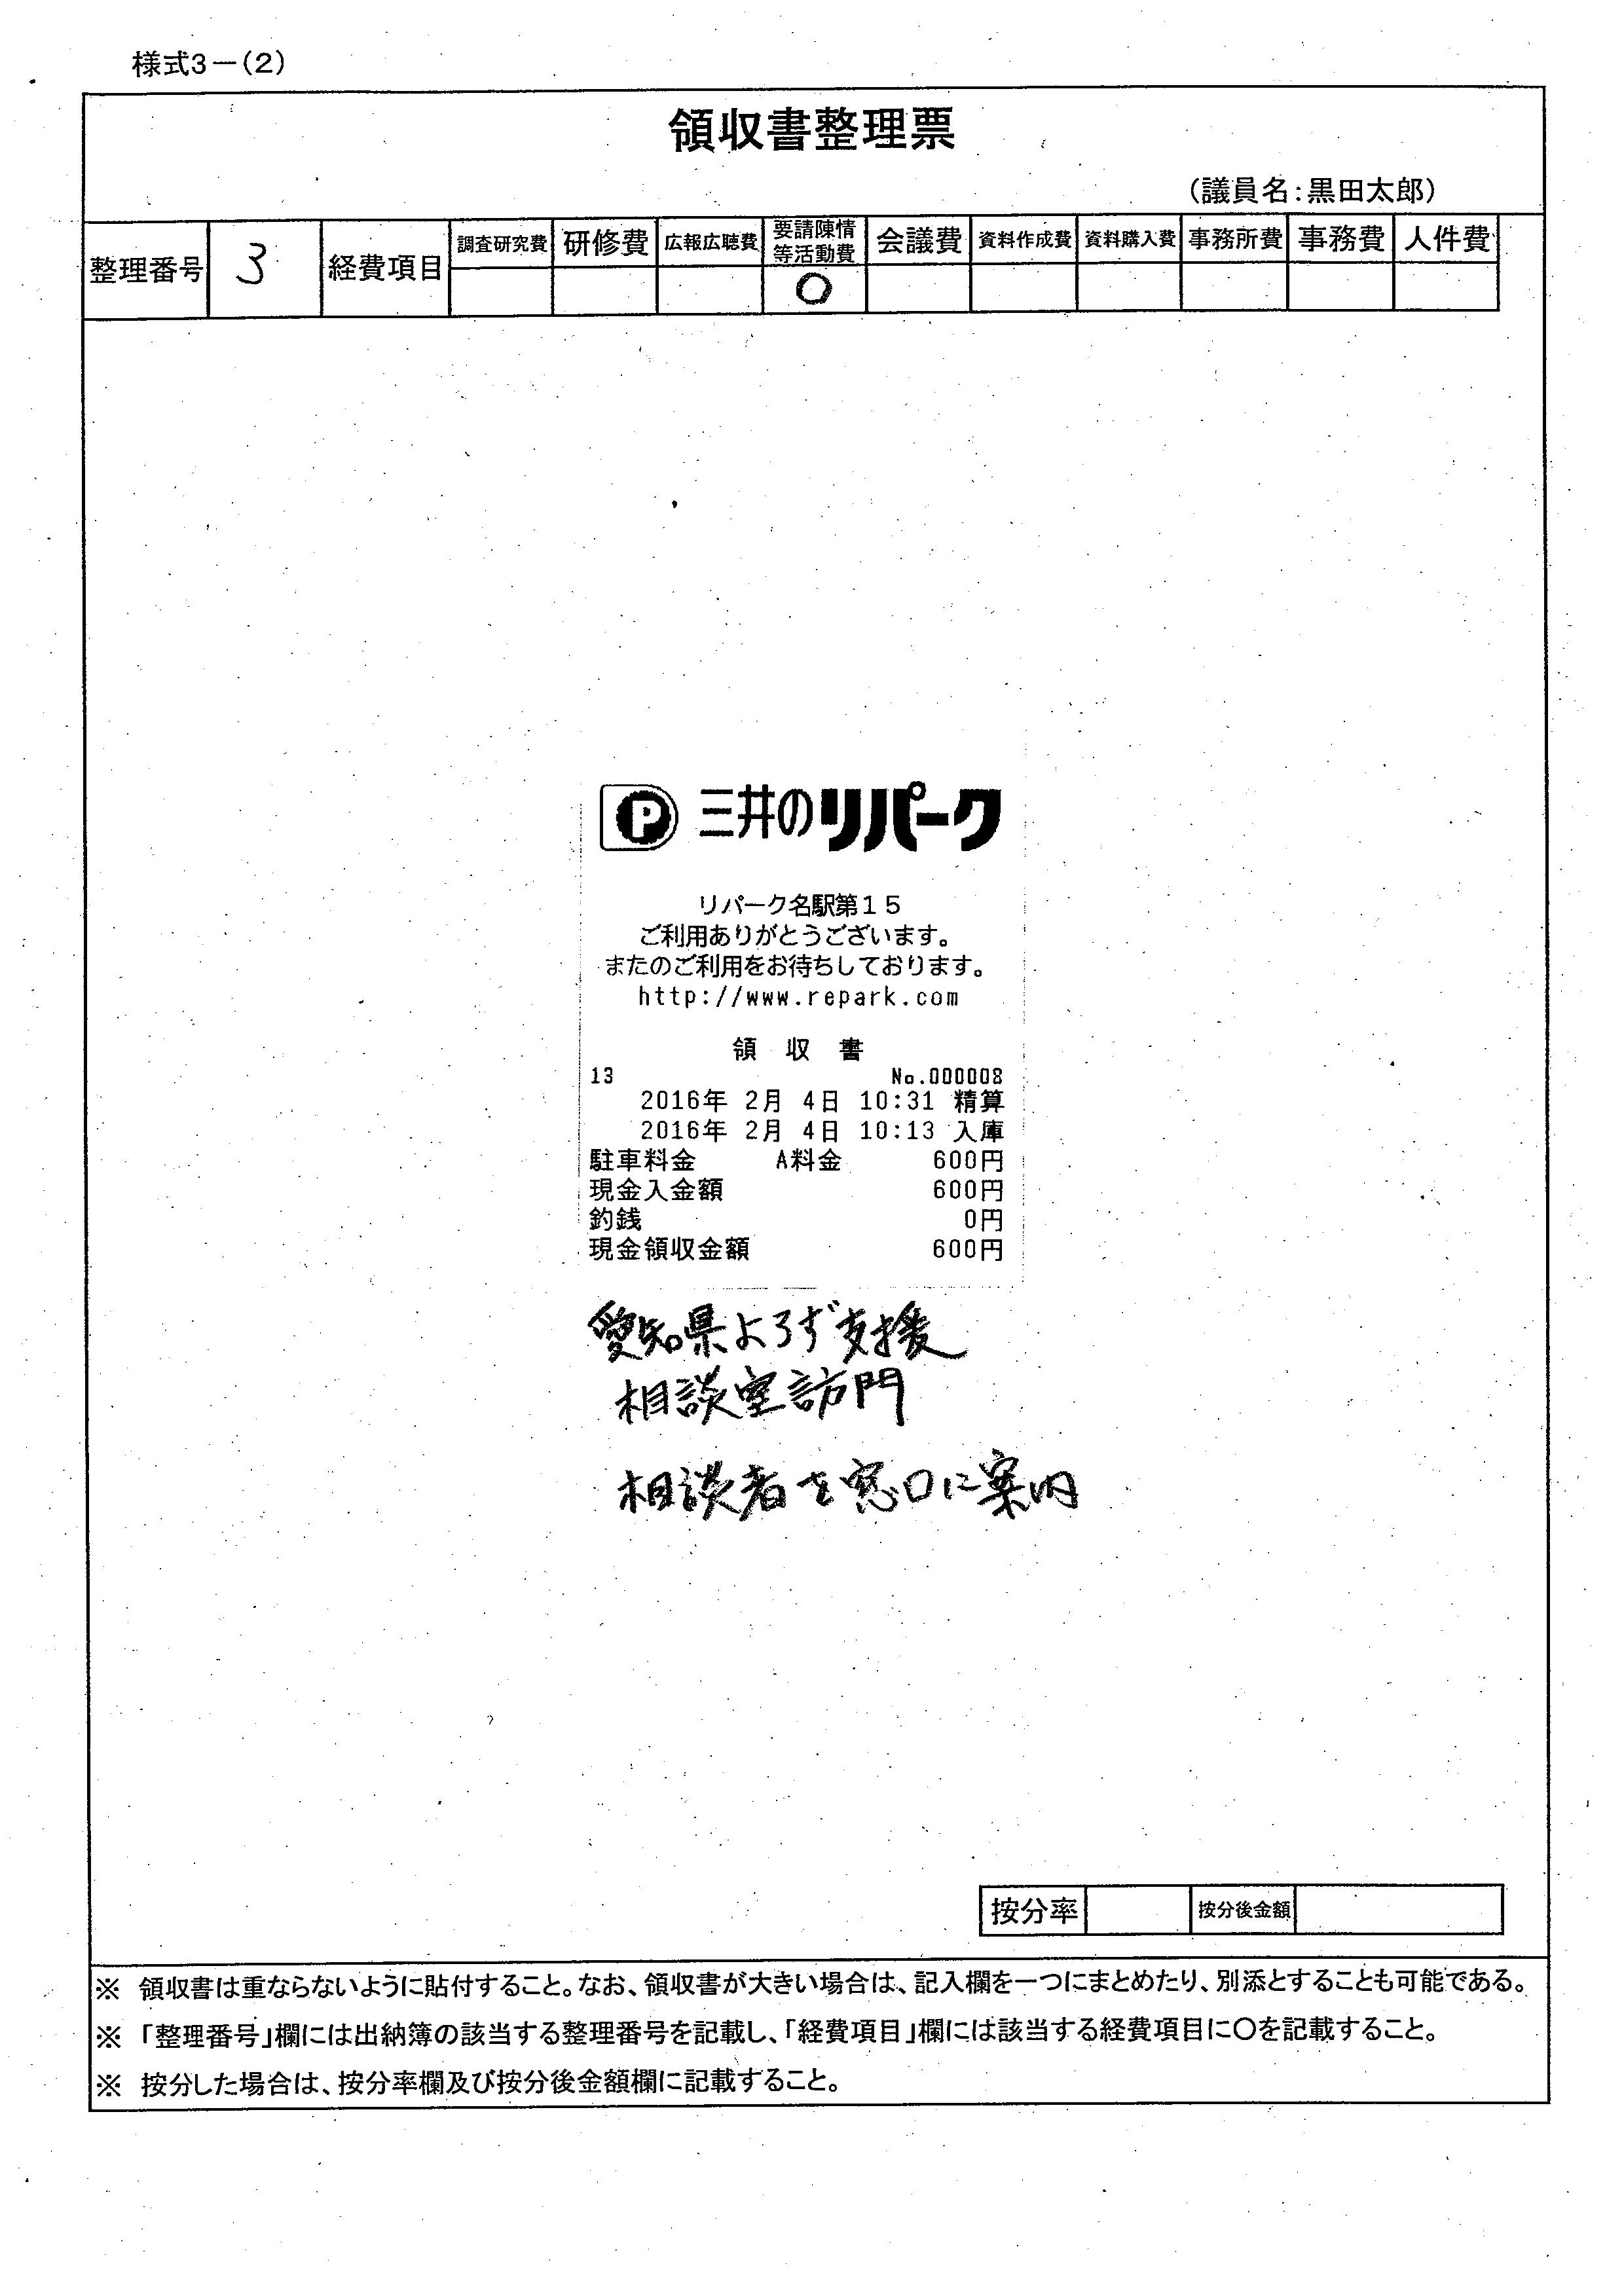 様式3－(2)
領収書整理票
(議員名:黒田太郎)
整理番号 3 経費項目 調査研究費 研修費 広報広聴費 要請陳情等活動費 会議費 資料作成費 資料購入費 事務所費 事務費 人件費
○
P 三井のリパーク
リパーク名駅第15
ご利用ありがとうございます。
またのご利用をお待ちしております。
http://www.repark.com
領 収 書
13 No.000008
2016年 2月 4日 10:31 精算
2016年 2月 4日 10:13 入庫
駐車料金 A料金 600円
現金入金額 600円
釣銭 0円
現金領収金額 600円
愛知県よろず支援
相談室訪問
相談者を窓口に案内
按分率 按分後金額
※ 領収書は重ならないように貼付すること。なお、領収書が大きい場合は、記入欄を一つにまとめたり、別添とすることも可能である。
※ 「整理番号」欄には出納簿の該当する整理番号を記載し、「経費項目」欄には該当する経費項目に○を記載すること。
※ 按分した場合は、按分率欄及び按分後金額欄に記載すること。